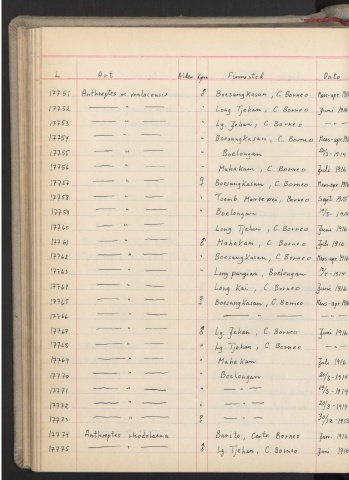 L Art Alder Kjønn Finnested Dato
17751 Anthreptes m. malacensis ♂ Boesangkasan, C. Borneo Mars-apr.
17752 — " — " Long Tjehan, C. Borneo Juni 1916
17753 — " — " Lg. Jehan, C. Borneo — " —
17754 — " — " Boesangkasan, C. Borneo Mars-apr.
17755 — " — " Boelongan 20/3-1914
17756 — " — " Mahakam, C. Borneo Juli 1916
17757 — " — ♀ Boesangkasan, C. Borneo Mars-apr.
17758 — " — " Toemb. Borneo Sept. 1915
17759 — " — " Boelongan 19/3-1914
17760 — " — " Long Tjehan, C. Borneo Juni 1916
17761 — " — ♂ Mahakam, C. Borneo Juli 1916
17762 — " — " Boesangkasan, C. Borneo Mars-apr. 1916
17763 — " — " Long pangian, Boelongan /4-1914
17764 — " — Long Kai, C. Borneo Juni 1916
17765 — " — ♀ Boesangkasan, C. Borneo Mars-apr.
17766 — " — — " — — " —
17767 — " — ♂ Lg. Jehan, C. Borneo Juni 1916
17768 — " — " Lg Tjehan, C. Borneo — " —
17769 — " — " Mahakam Juli 1916
17770 — " — " Boelongan 20/3-1914
17771 — " — " — " — 19/3-1914
17772 — " — " — " — 20/3-1914
17773 — " — ♀ — " — 30/12-1913
17774 Anthreptes rhodolaema Barito, Centr. Borneo Jan. 1916
17775 — " — ♂ Lg. Tjehan, C. Borneo Juni 1916